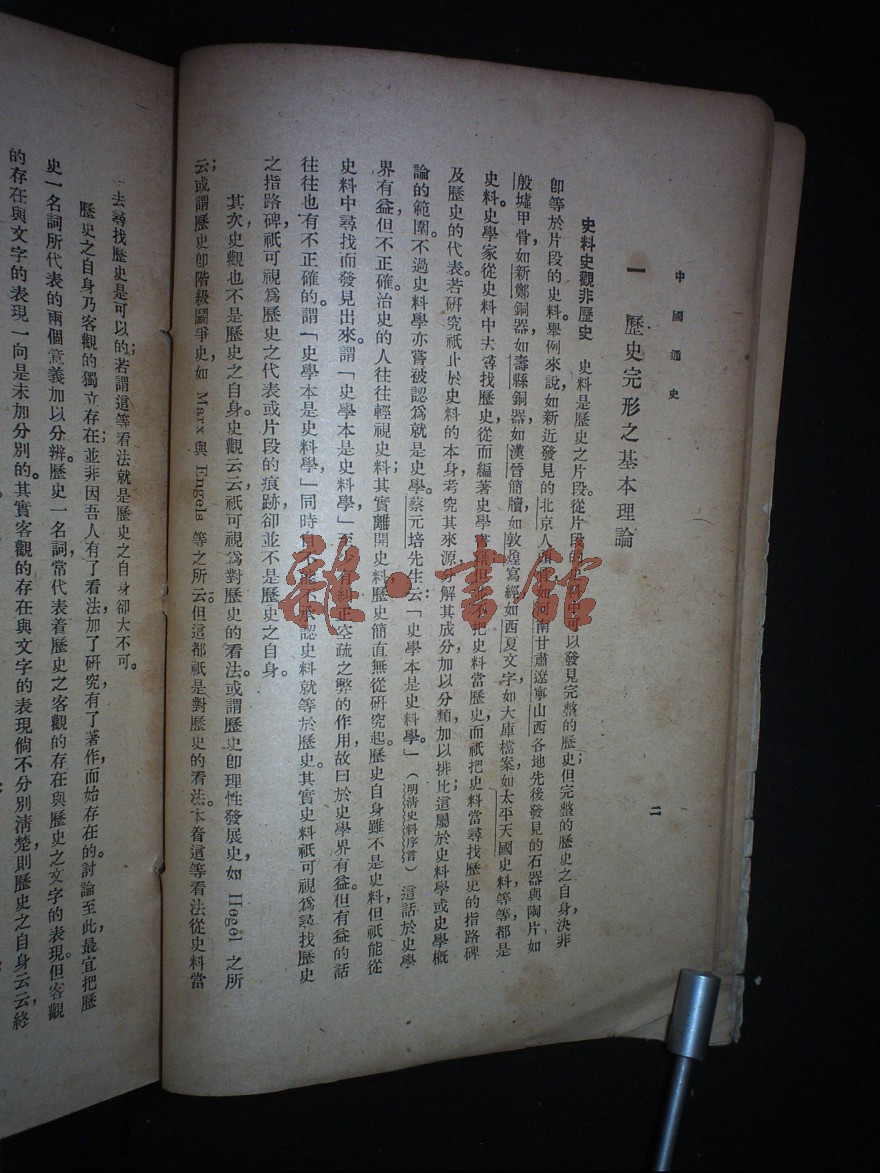 中國通史
二
一 歷史完形之基本理論
史料史觀非歷史 史料是歷史之片段。從片段的史料中可以發見完整的歷史;但完整的歷史之自身,決非
卽等於片段的史料。舉例來說,如新近發見的北京人頭骨,如河南甘肅遼寧山西各地先後發見的石器與陶片,如
殷墟甲骨,如新鄭銅器,如壽縣銅器,如漢晉簡牘,如敦煌寫經,如西夏文字,如大庫檔案,如太平天國史料,等等,都是
史料。史學家從史料中去尋找歷史,從而編著史學書籍,但並不把史料當歷史,而祇把史料當尋找歷史的指路碑
及歷史的代表。若研究祇止於史料的本身,考究其來源,分解其成分,加以分類,加以排比;這屬於史料學或史學槪
論的範圍。不過史料學亦嘗被認爲就是史學。蔡元培先生云:「史學本是史料學。」(明清史料序言)這話於史學
界有益,但不正確。治史的人往往輕視史料;其實離開史料,歷史簡直無從研究起。歷史自身雖不是史料,但祇能從
史料中尋找而發見出來。謂「史學本是史料學,」至少有糾正空疏之弊的作用,故曰於史學界有益。但有益的話
往往也有不正確的。謂「史學本是史料學,」同時不承認史料就等於歷史。其實史料祇可視爲尋找歷史
之指路碑,祇可視爲歷史之代表或片段的痕跡,卻並不是歷史之自身。
其次,史觀也不是歷史之自身。史觀云云,祇可視爲對歷史的看法。或謂歷史卽理性發展史,如 Hegel 之所
云;或謂歷史卽階級鬭爭史,如 Marx 與 Engels 等之所云。但這都祇是對歷史的看法。本着這等看法從史料當
去尋找歷史是可以的;若謂這等看法就是歷史之自身卻大不可。
歷史之自身乃客觀的獨立存在;並非因吾人有了看法,加了研究,有了著作,而始存在的。討論至此,最宜把歷
史一名詞所代表的兩個意義加以分辨。歷史一名詞常代表着歷史之客觀的存在與歷史之文字的表現。但客觀
的存在與文字的表現一向是未加分別的。其實客觀的存在與文字的表現倘不分別清楚,則歷史之自身云云,終
雜·書館